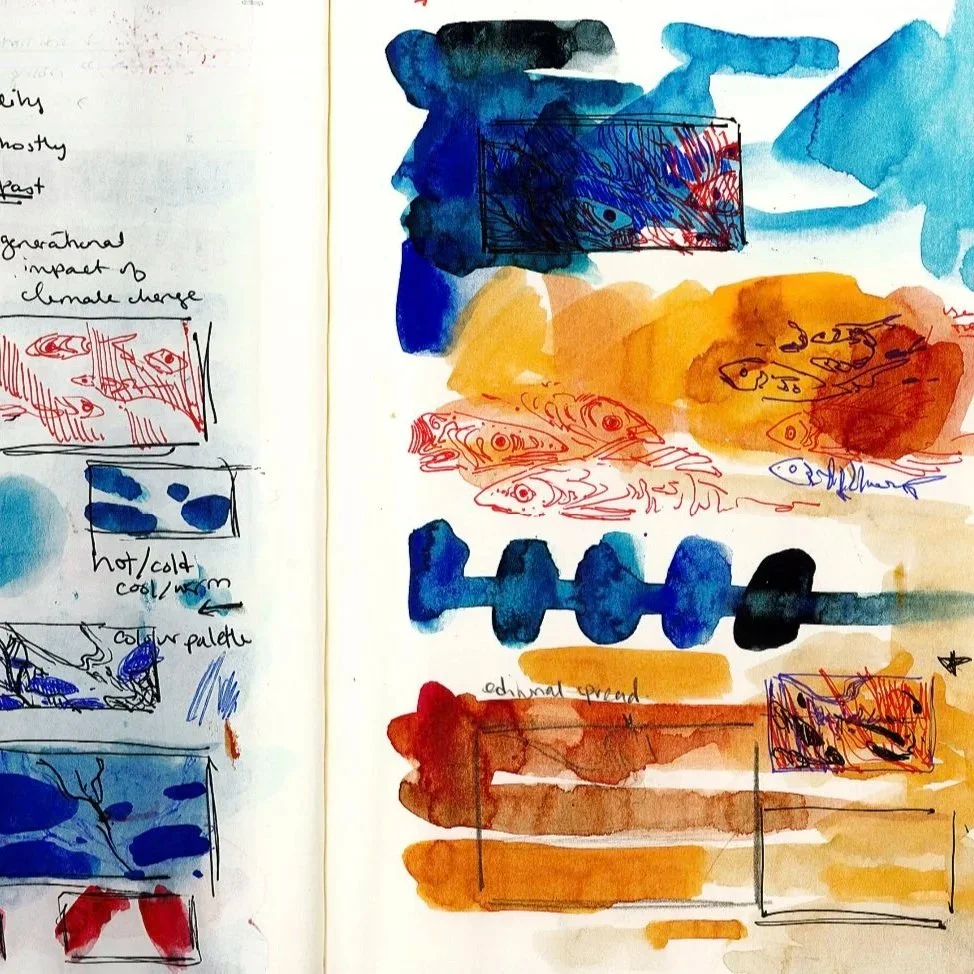 hostly
past
generational
impact of
climate change
hot/cold
cool/warm
colour palette
editorial spread